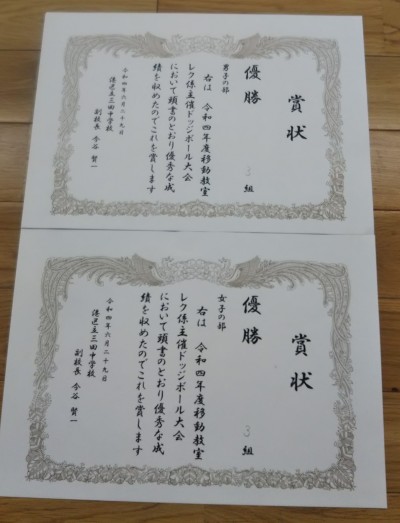 賞状
優勝
3組
男子の部
右は 令和四年度移動教室
レク係主催ドッジボール大会
において頭書のとおり優秀な成
績を収めたのでこれを賞します
令和四年六月二十九日
港区立三田中学校
副校長 今谷 賢一
賞状
優勝
3組
女子の部
右は 令和四年度移動教室
レク係主催ドッジボール大会
において頭書のとおり優秀な成
績を収めたのでこれを賞します
令和四年六月二十九日
港区立三田中学校
副校長 今谷 賢一